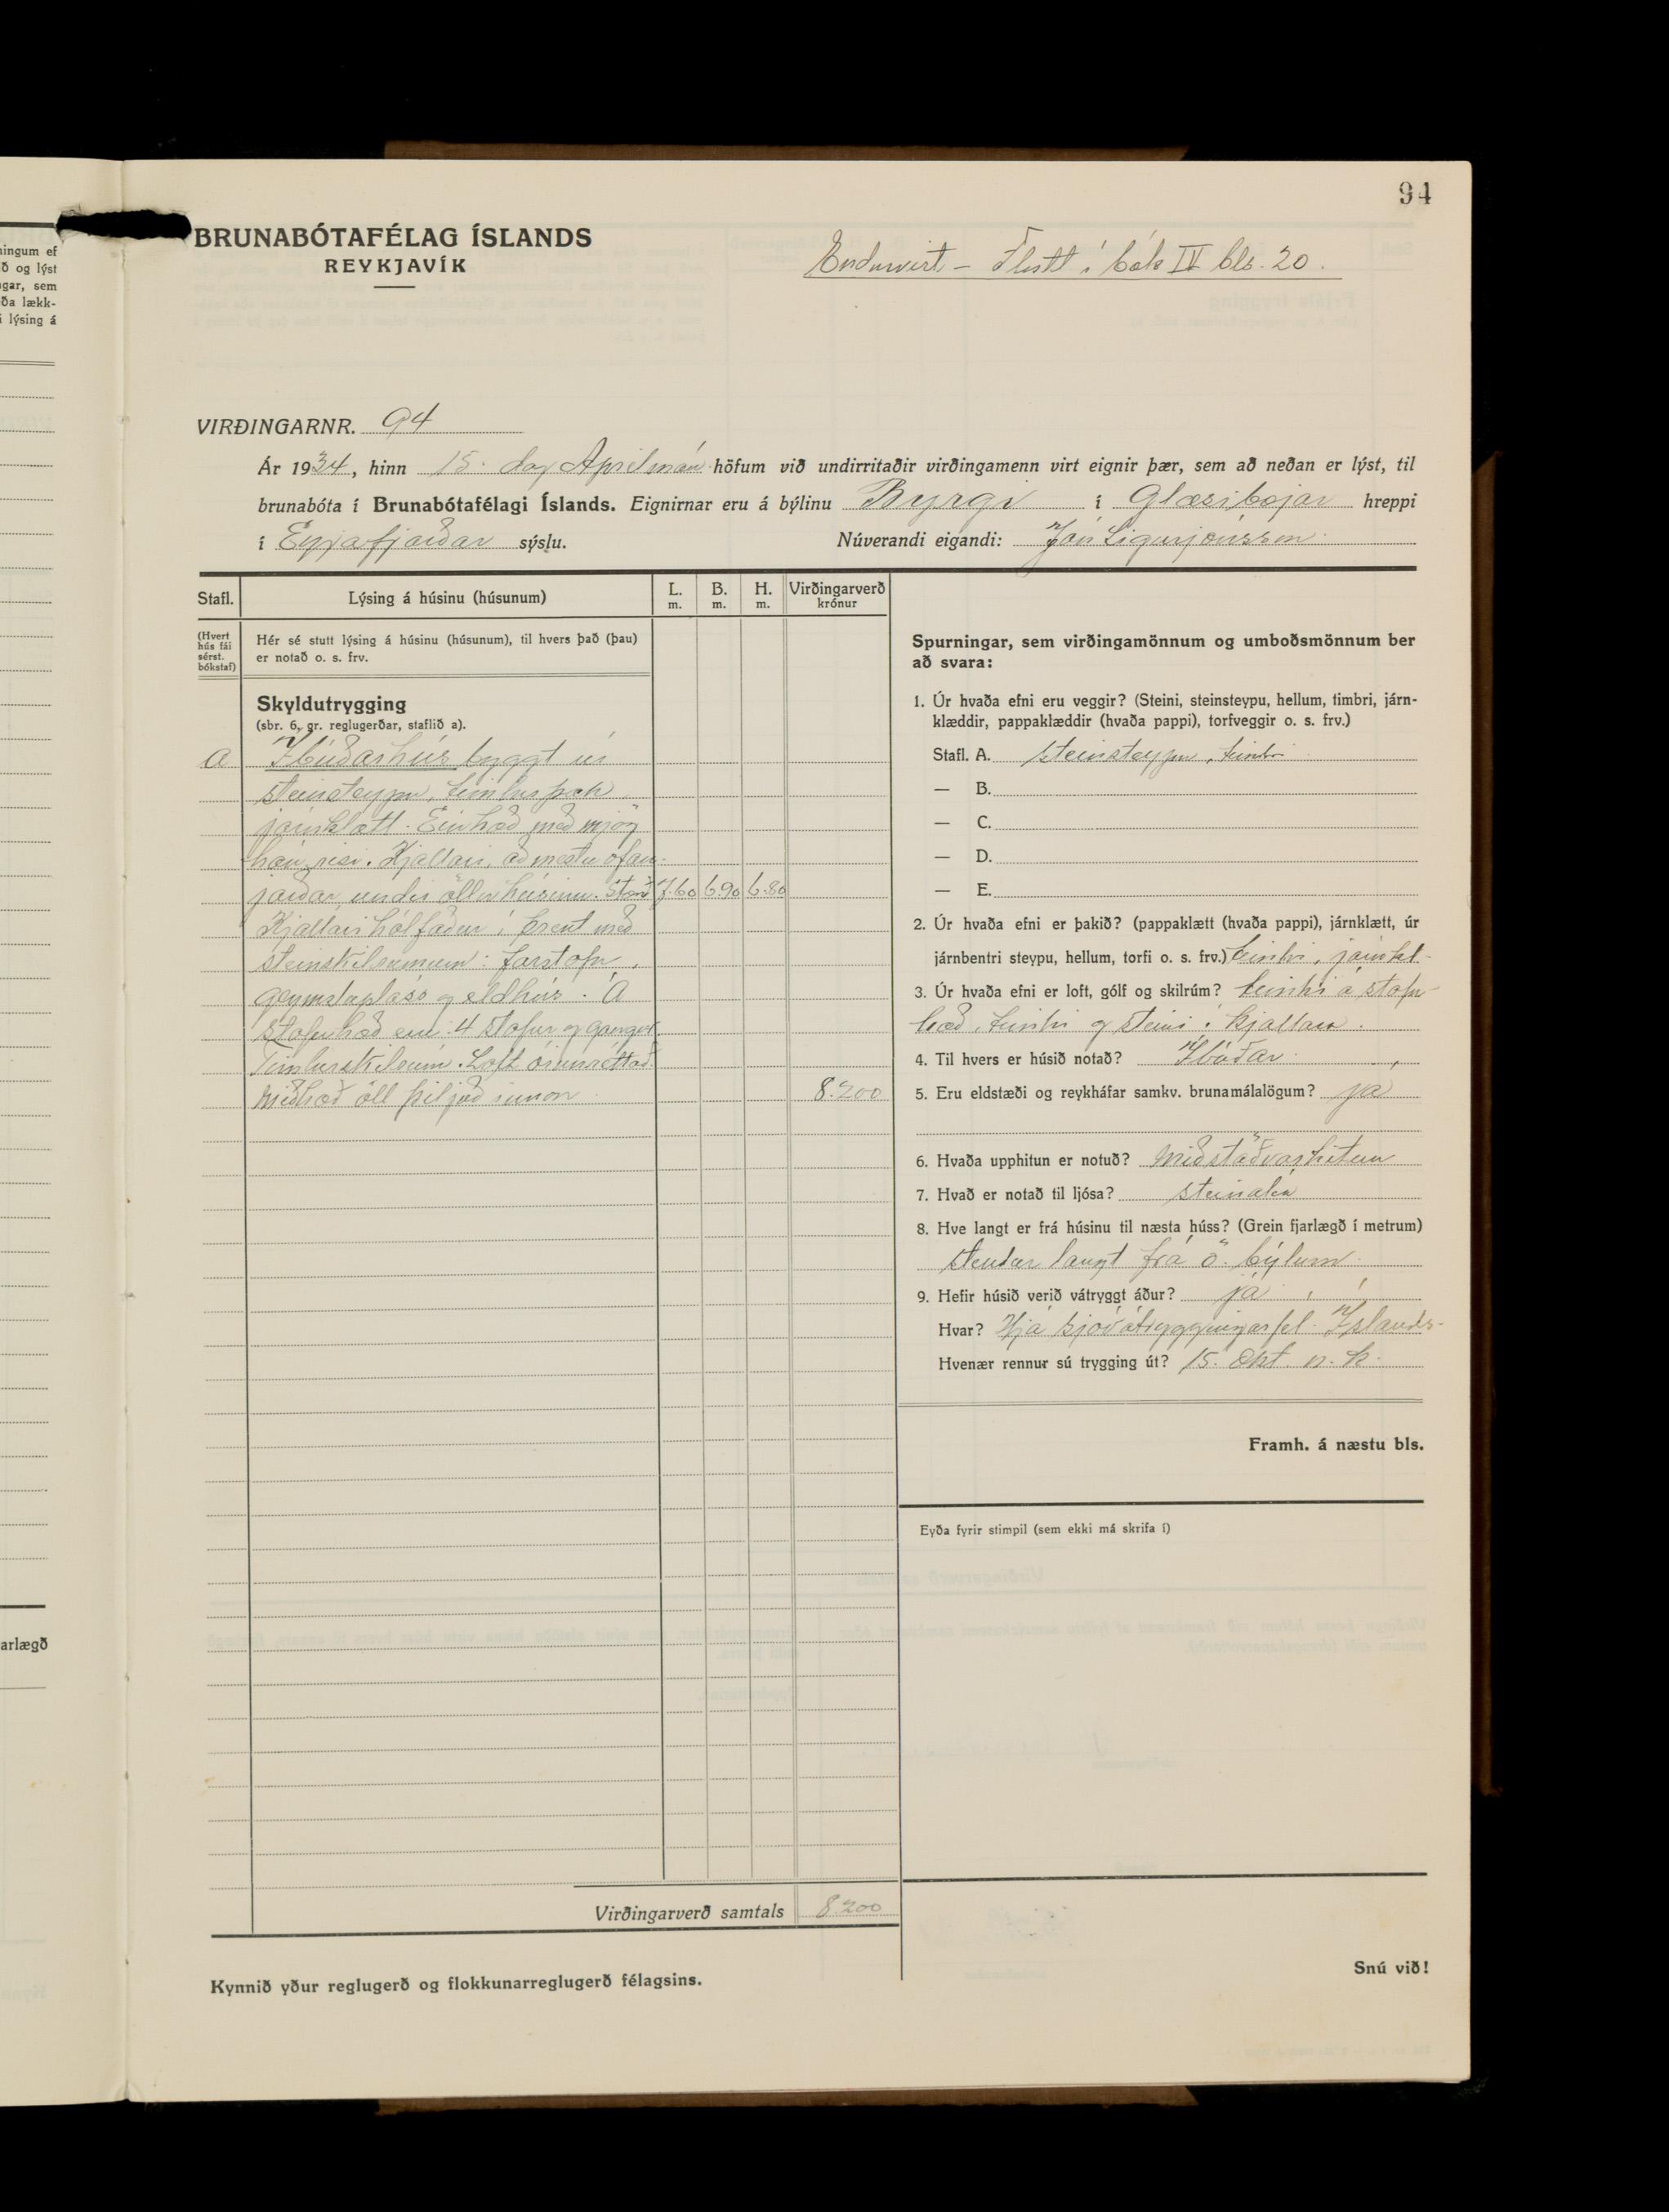 94
BRUNABÓTAFÉLAG ÍSLANDS
REYKJAVÍK
Endurvirt – Flutt í bók IV bls. 20.
VIRÐINGARNR. 94
Ár 1934, hinn 15. dag Aprílmán. höfum við undirritaðir virðingamenn virt eignir þær, sem að neðan er lýst, til
brunabóta í Brunabótafélagi Íslands. Eignirnar eru á býlinu Byrgi í Glæsibæjar hreppi
í Eyjafjarðar sýslu. Núverandi eigandi: Jón Sigurjónsson
Stafl. Lýsing á húsinu (húsunum) L. m. B. m. H. m. Virðingarverð krónur
(Hvert hús fái sérst. bókstaf)
Hér sé stutt lýsing á húsinu (húsunum), til hvers það (þau)
er notað o. s. frv.
Skyldutrygging
(sbr. 6. gr. reglugerðar, staflið a).
A Íbúðarhús byggt úr
steinsteypu, timburþak
járnklætt. Ein hæð með mjög
háu risi. Kjallari, að mestu ofan-
jarðar undir öllu húsinu. Stærð 7.60 6.90 6.80
Kjallari hólfaður í þrent með
steinskilrúmum: forstofu,
geymslupláss og eldhús. Á
stofuhæð eru: 4 stofur og gangur.
Timburskilrúm. Loft óinnréttað.
Miðhæð öll þiljuð innan. 8.200
Virðingarverð samtals 8200
Kynnið yður reglugerð og flokkunarreglugerð félagsins.
Spurningar, sem virðingamönnum og umboðsmönnum ber
að svara:
1. Úr hvaða efni eru veggir? (Steini, steinsteypu, hellum, timbri, járn-
klæddir, pappaklæddir (hvaða pappi), torfveggir o. s. frv.)
Stafl. A. steinsteypu, timbri
— B.
— C.
— D.
— E.
2. Úr hvaða efni er þakið? (pappaklætt (hvaða pappi), járnklætt, úr
járnbentri steypu, hellum, torfi o. s. frv.) timbri, járnkl.
3. Úr hvaða efni er loft, gólf og skilrúm? timbri á stofu-
hæð, timbri og steini í kjallara.
4. Til hvers er húsið notað? Íbúðar.
5. Eru eldstæði og reykháfar samkv. brunamálalögum? já
6. Hvaða upphitun er notuð? Miðstöðvarhitun
7. Hvað er notað til ljósa? steinolía
8. Hve langt er frá húsinu til næsta húss? (Grein fjarlægð í metrum)
stendur langt frá ö. býlum.
9. Hefir húsið verið vátryggt áður? já
Hvar? Hjá Sjóvátryggingarfel. Íslands.
Hvenær rennur sú trygging út? 15. Okt. n. k.
Framh. á næstu bls.
Eyða fyrir stimpil (sem ekki má skrifa í)
Snú við!
ningum ef
ð og lýst
gar, sem
ða lækk-
i lýsing á
arlægð